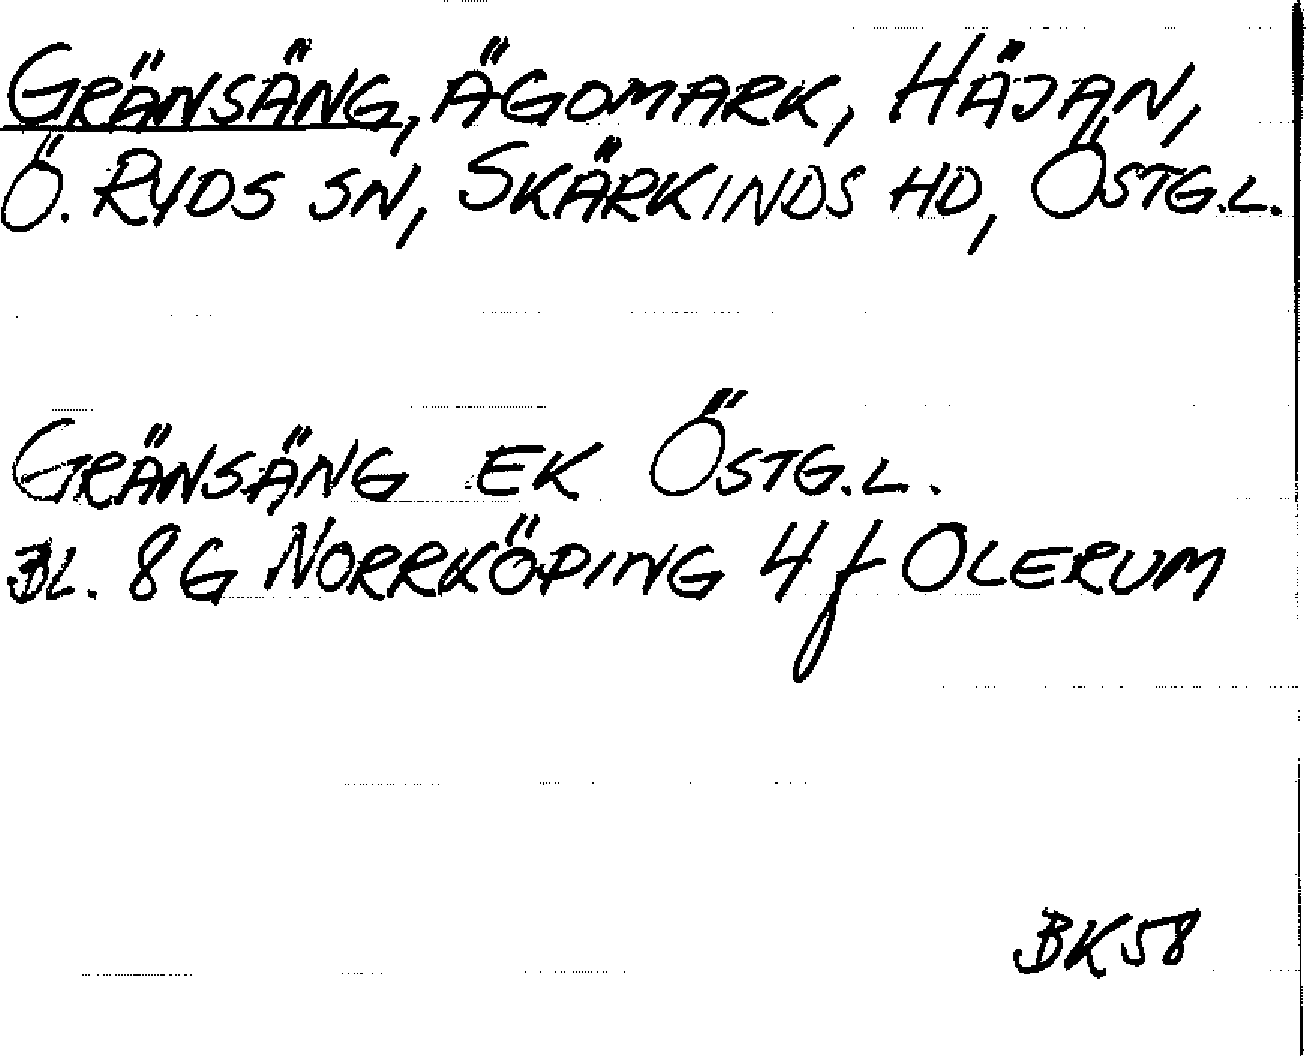 GRÄNSÄNG, ÄGOMARK, HÄJAN,
Ö. RYDS SN, SKÄRKINDS HD, ÖSTG.L.
GRÄNSÄNG EK ÖSTG.L.
BL. 8G NORRKÖPING 4f OLERUM
BK58